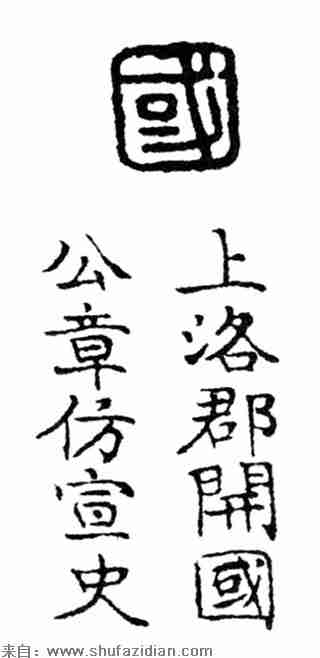 國
上洛郡開國
公章仿宣史
来自：www.shufazidian.com